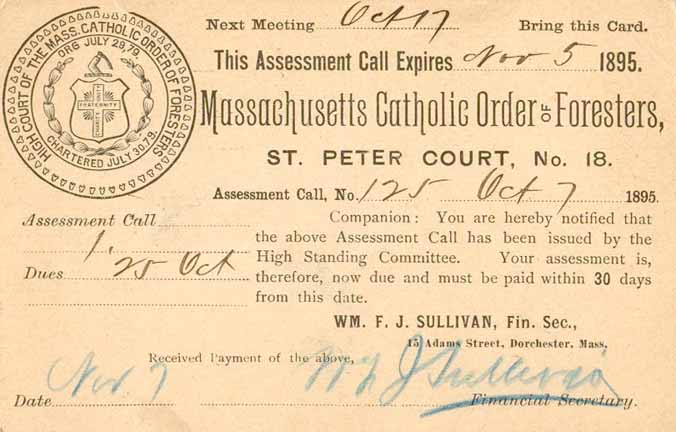 Next Meeting Oct 17 Bring this Card.
This Assessment Call Expires Nov 5 1895.
HIGH COURT OF THE MASS. CATHOLIC ORDER OF FORESTERS
ORG JULY 29,79.
FRATERNITY
UNITY
CHARITY
CHARTERED JULY 30,79.
Massachusetts Catholic Order of Foresters,
ST. PETER COURT, No. 18.
Assessment Call, No. 125 Oct 7 1895.
Assessment Call
1.
Dues 25 Oct
Companion: You are hereby notified that
the above Assessment Call has been issued by the
High Standing Committee. Your assessment is,
therefore, now due and must be paid within 30 days
from this date.
WM. F. J. SULLIVAN, Fin. Sec.,
15 Adams Street, Dorchester, Mass.
Received Payment of the above,
Date Nov 7 W F J Sullivan
Financial Secretary.